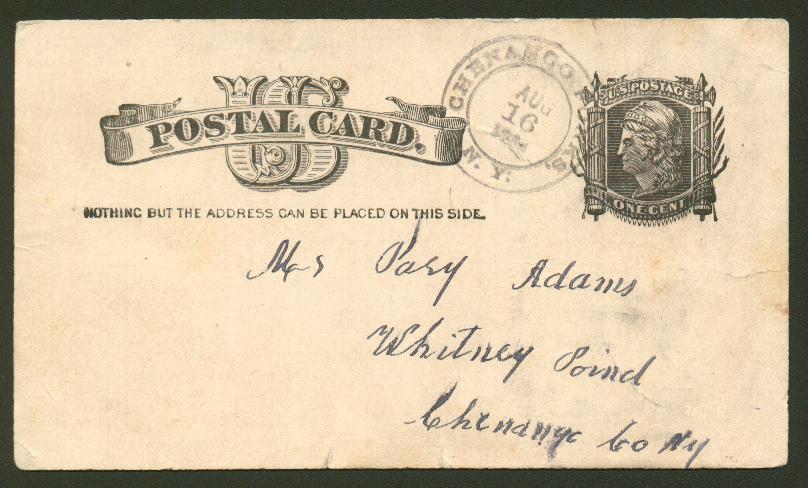 US
POSTAL CARD.
NOTHING BUT THE ADDRESS CAN BE PLACED ON THIS SIDE.
CHENANGO
AUG
16
N. Y.
U.S. POSTAGE
ONE CENT
Mrs Adams
Whitney Poind
Chenango Co NY